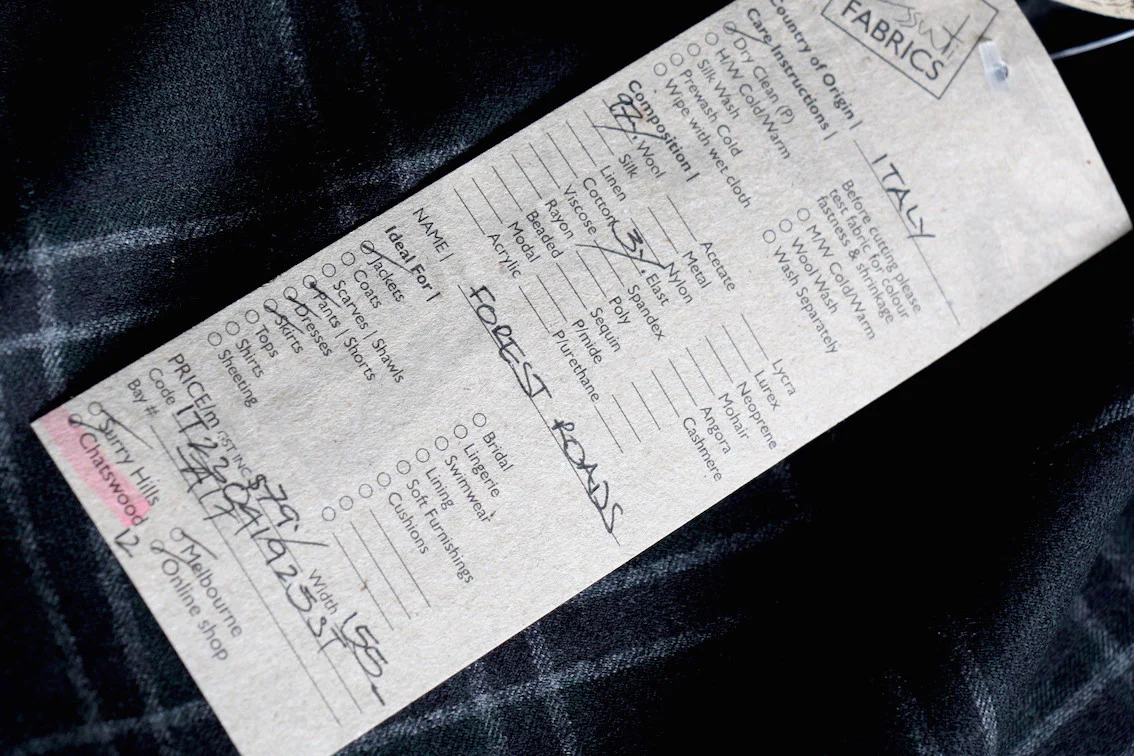 FABRICS
Country of Origin | ITALY
Care Instructions |
Dry Clean (P)
H/W Cold/Warm
Silk Wash
Prewash Cold
Wipe with wet cloth
Before cutting please
test fabric for colour
fastness & shrinkage
M/W Cold/Warm
Wool Wash
Wash Separately
Composition |
97% Wool
Silk
Linen
Cotton
Viscose
Rayon
Beaded
Modal
Acrylic
Acetate
Metal
Nylon
3% Elast
Spandex
Poly
Sequin
P/mide
P/urethane
Lycra
Lurex
Neoprene
Mohair
Angora
Cashmere
NAME | FOREST ROADS
Ideal For |
Jackets
Coats
Scarves | Shawls
Pants | Shorts
Dresses
Skirts
Tops
Shirts
Sheeting
Bridal
Lingerie
Swimwear
Lining
Soft Furnishings
Cushions
PRICE/m GST INC $79./ Width 155
Code
Bay #
Surry Hills
Chatswood
Melbourne
Online shop